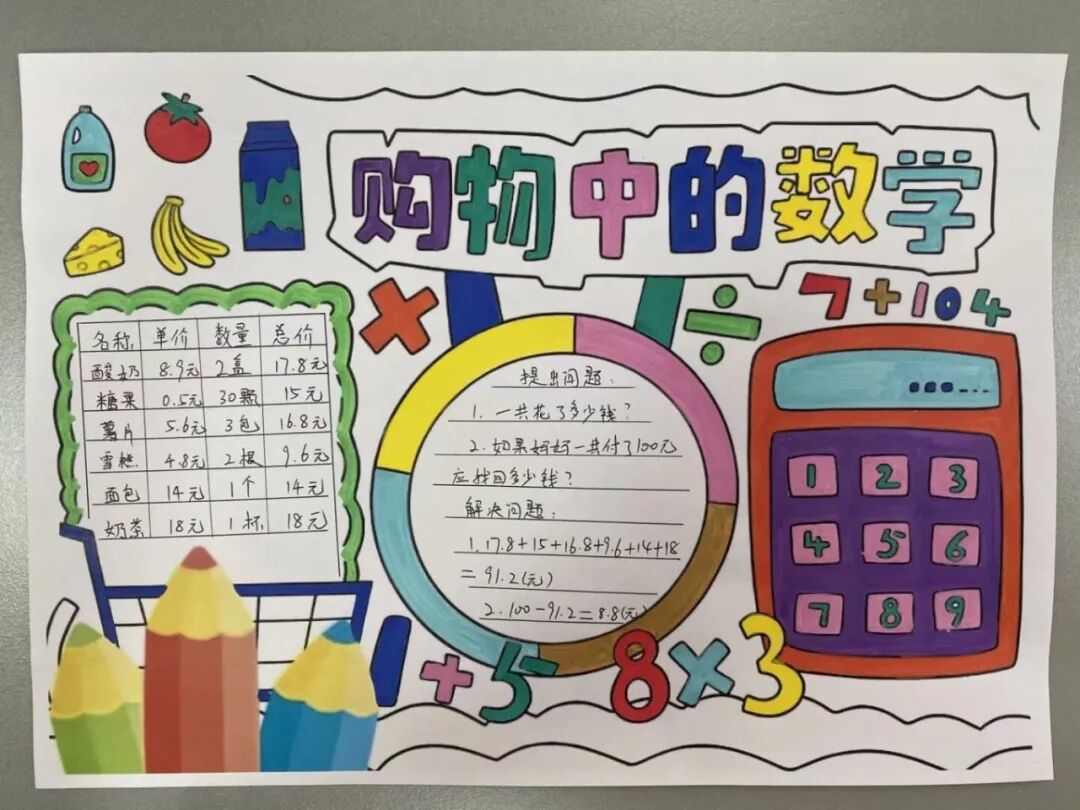 购物中的数学
7+104
名称 单价 数量 总价
酸奶 8.9元 2盒 17.8元
糖果 0.5元 30颗 15元
薯片 5.6元 3包 16.8元
雪糕 4.8元 2根 9.6元
面包 14元 1个 14元
奶茶 18元 1杯 18元
提出问题:
1. 一共花了多少钱?
2. 如果妈妈一共付了100元
应找回多少钱?
解决问题:
1. 17.8+15+16.8+9.6+14+18
=91.2(元)
2. 100-91.2=8.8(元)
×
÷
1 2 3
4 5 6
7 8 9
1+5 8×3